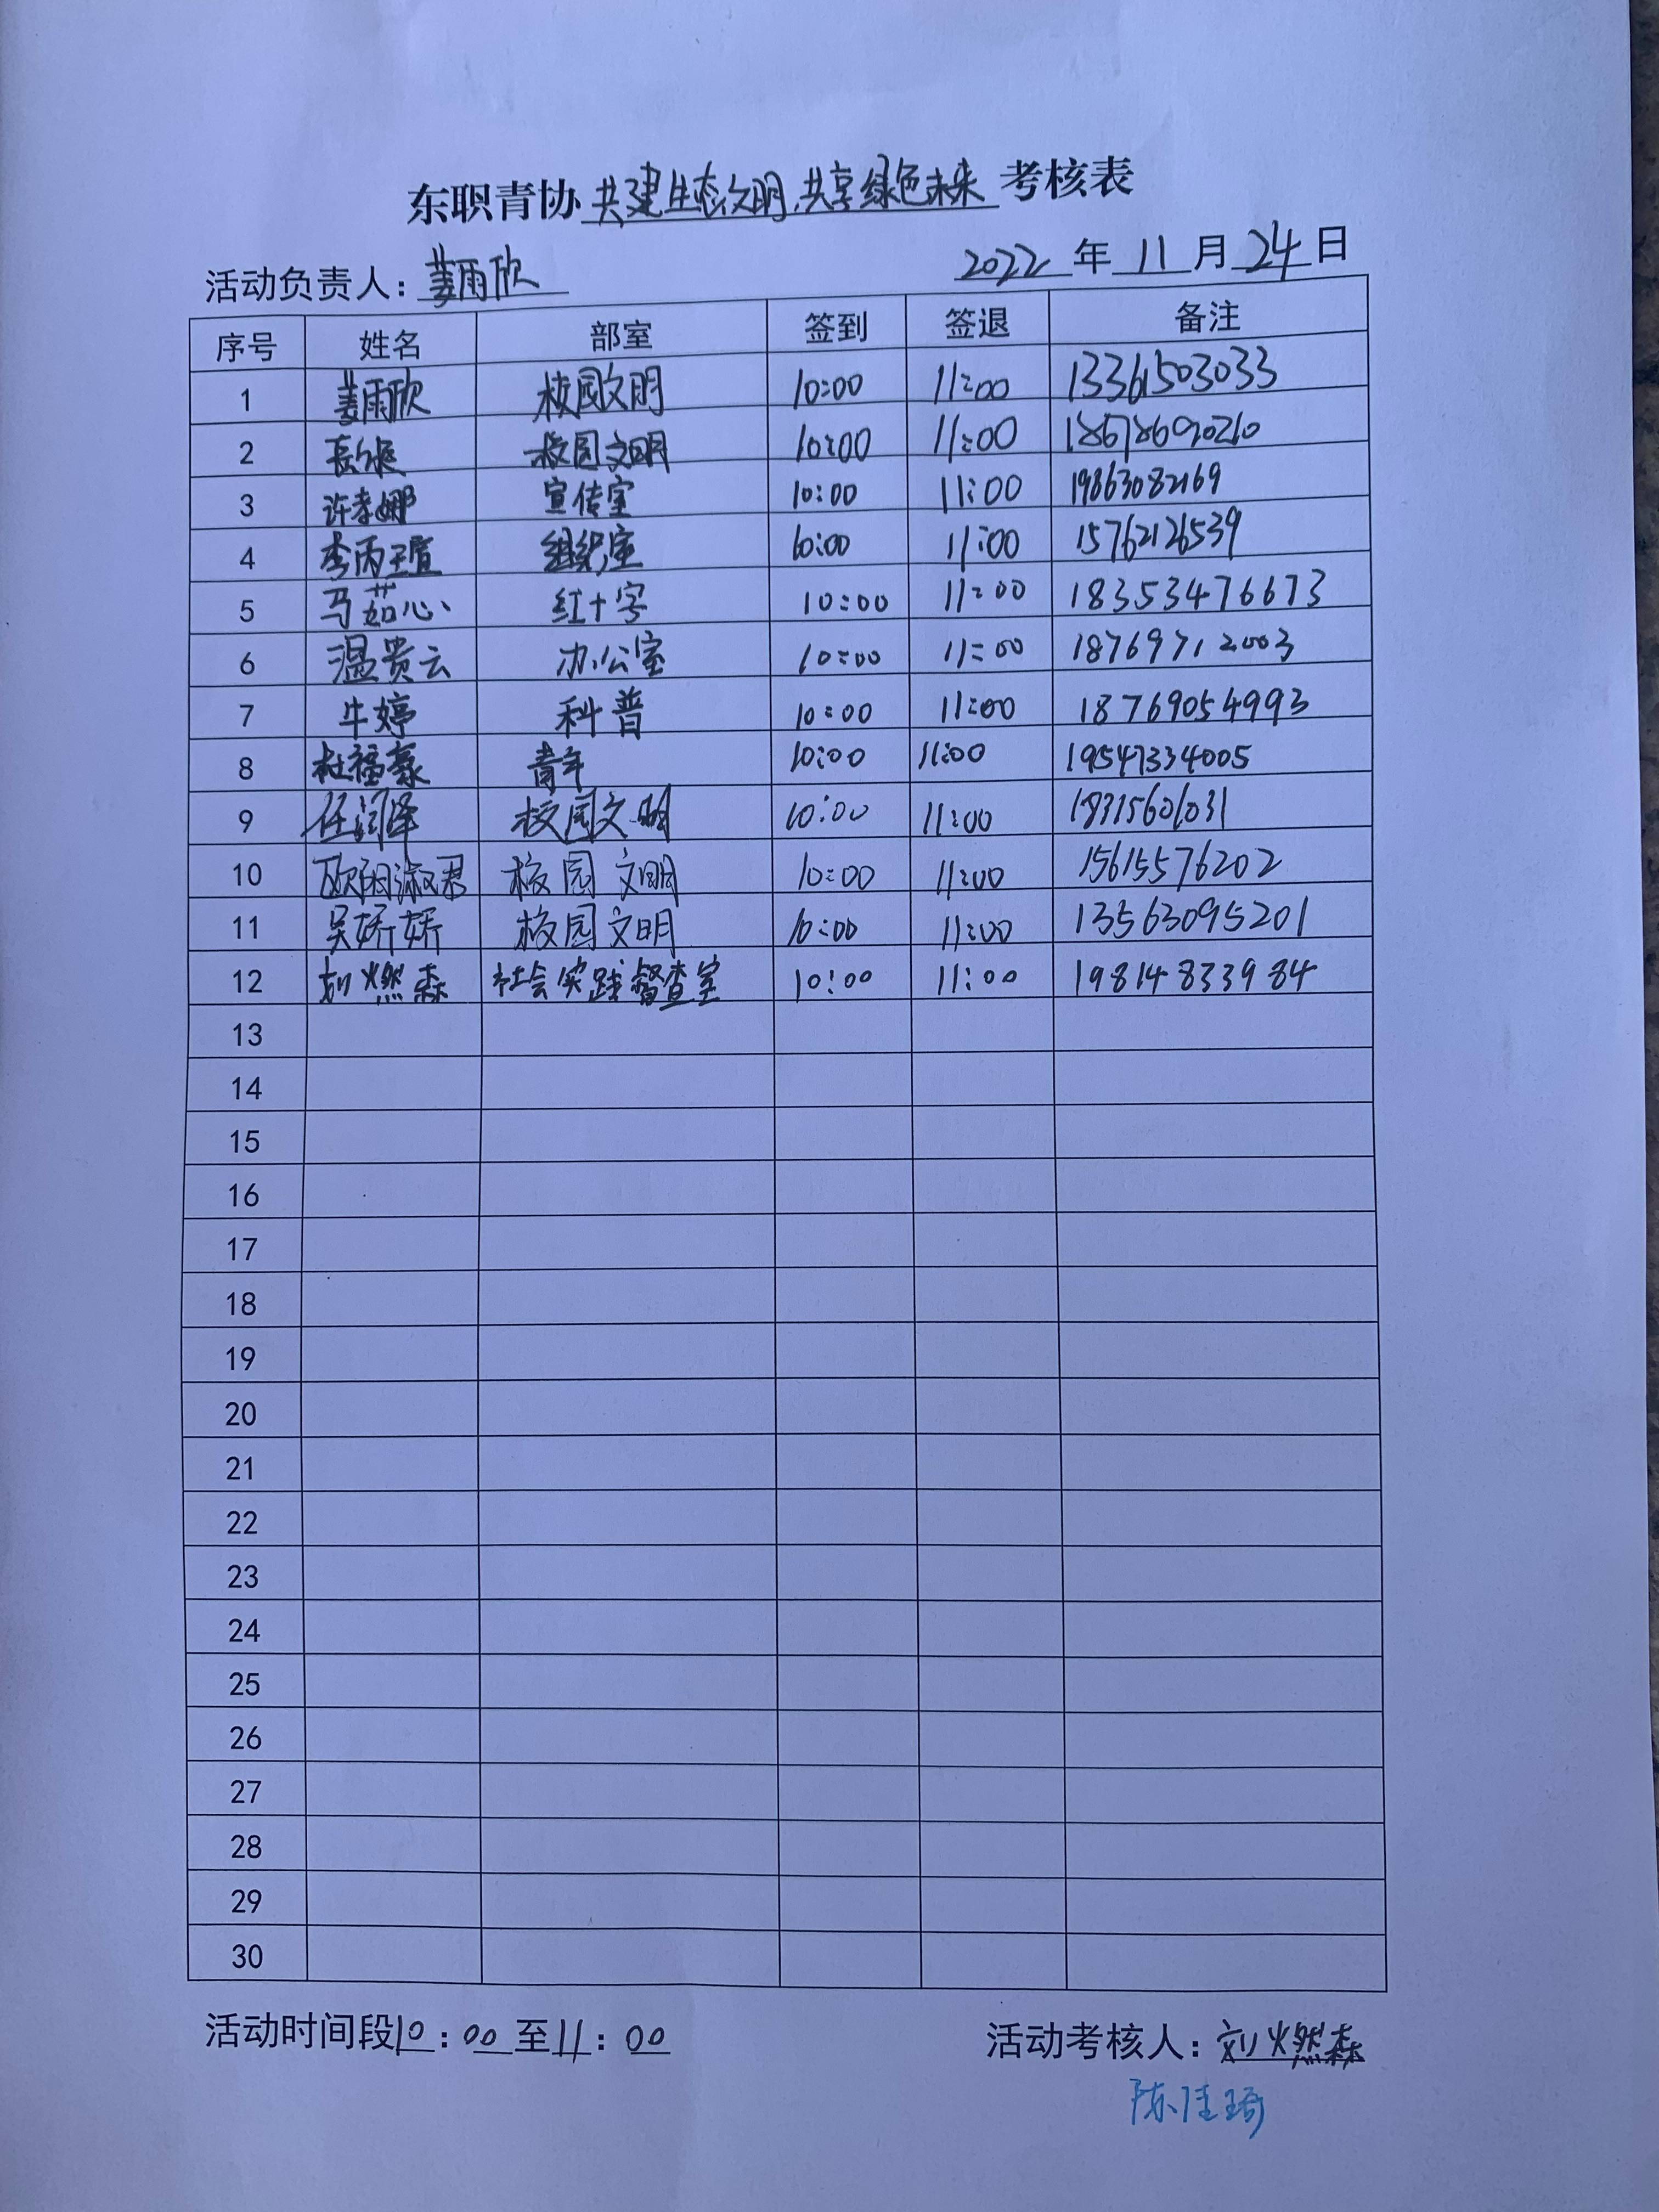 东职青协 共建生态文明,共享绿色未来 考核表
活动负责人: 姜雨欣 2022 年 11 月 24 日
序号 姓名 部室 签到 签退 备注
1 姜雨欣 校园文明 10:00 11:00 13361503033
2 校园文明 10:00 11:00 18678690210
3 许孝娜 宣传室 10:00 11:00 19863082169
4 李丙瑄 组织室 10:00 11:00 15762126539
5 马茹心 红十字 10:00 11:00 18353476673
6 温贵云 办公室 10:00 11:00 18769712003
7 牛婷 科普 10:00 11:00 18769054993
8 杜福豪 青年 10:00 11:00 19547334005
9 任润泽 校园文明 10:00 11:00 18315601031
10 欧阳淑君 校园文明 10:00 11:00 15615576202
11 吴娇娇 校园文明 10:00 11:00 13563095201
12 刘燃森 社会实践督查室 10:00 11:00 19814833984
13
14
15
16
17
18
19
20
21
22
23
24
25
26
27
28
29
30
活动时间段10:00至11:00 活动考核人: 刘燃森
陈佳琦